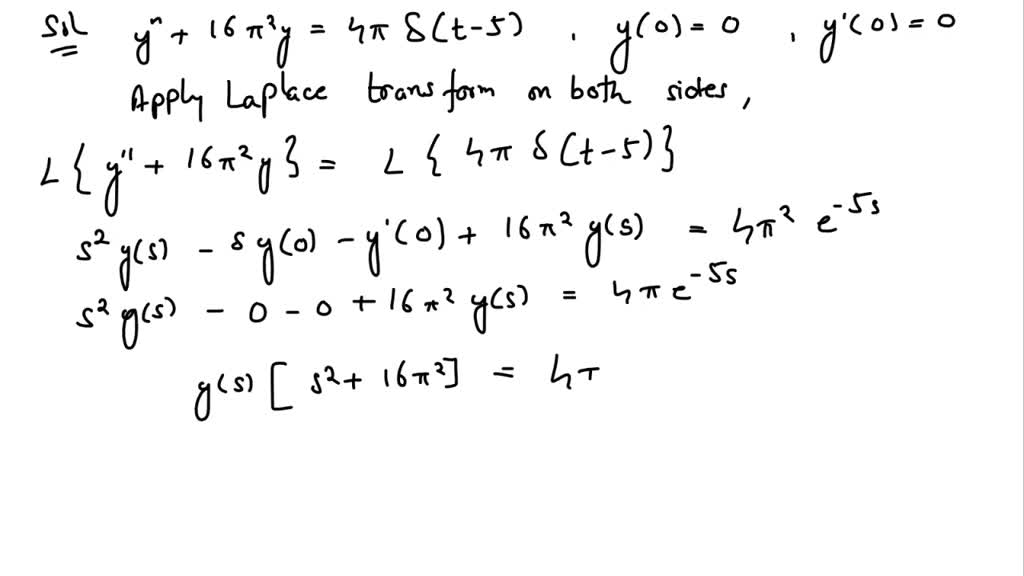 Sol y" + 16π²y = 4π δ(t-5) , y(0) = 0 , y'(0) = 0
Apply Laplace transform on both sides,
L{y" + 16π²y} = L{4π δ(t-5)}
s² y(s) - s y(0) - y'(0) + 16π² y(s) = 4π² e^-5s
s² y(s) - 0 - 0 + 16π² y(s) = 4π e^-5s
y(s) [ s² + 16π² ] = 4π